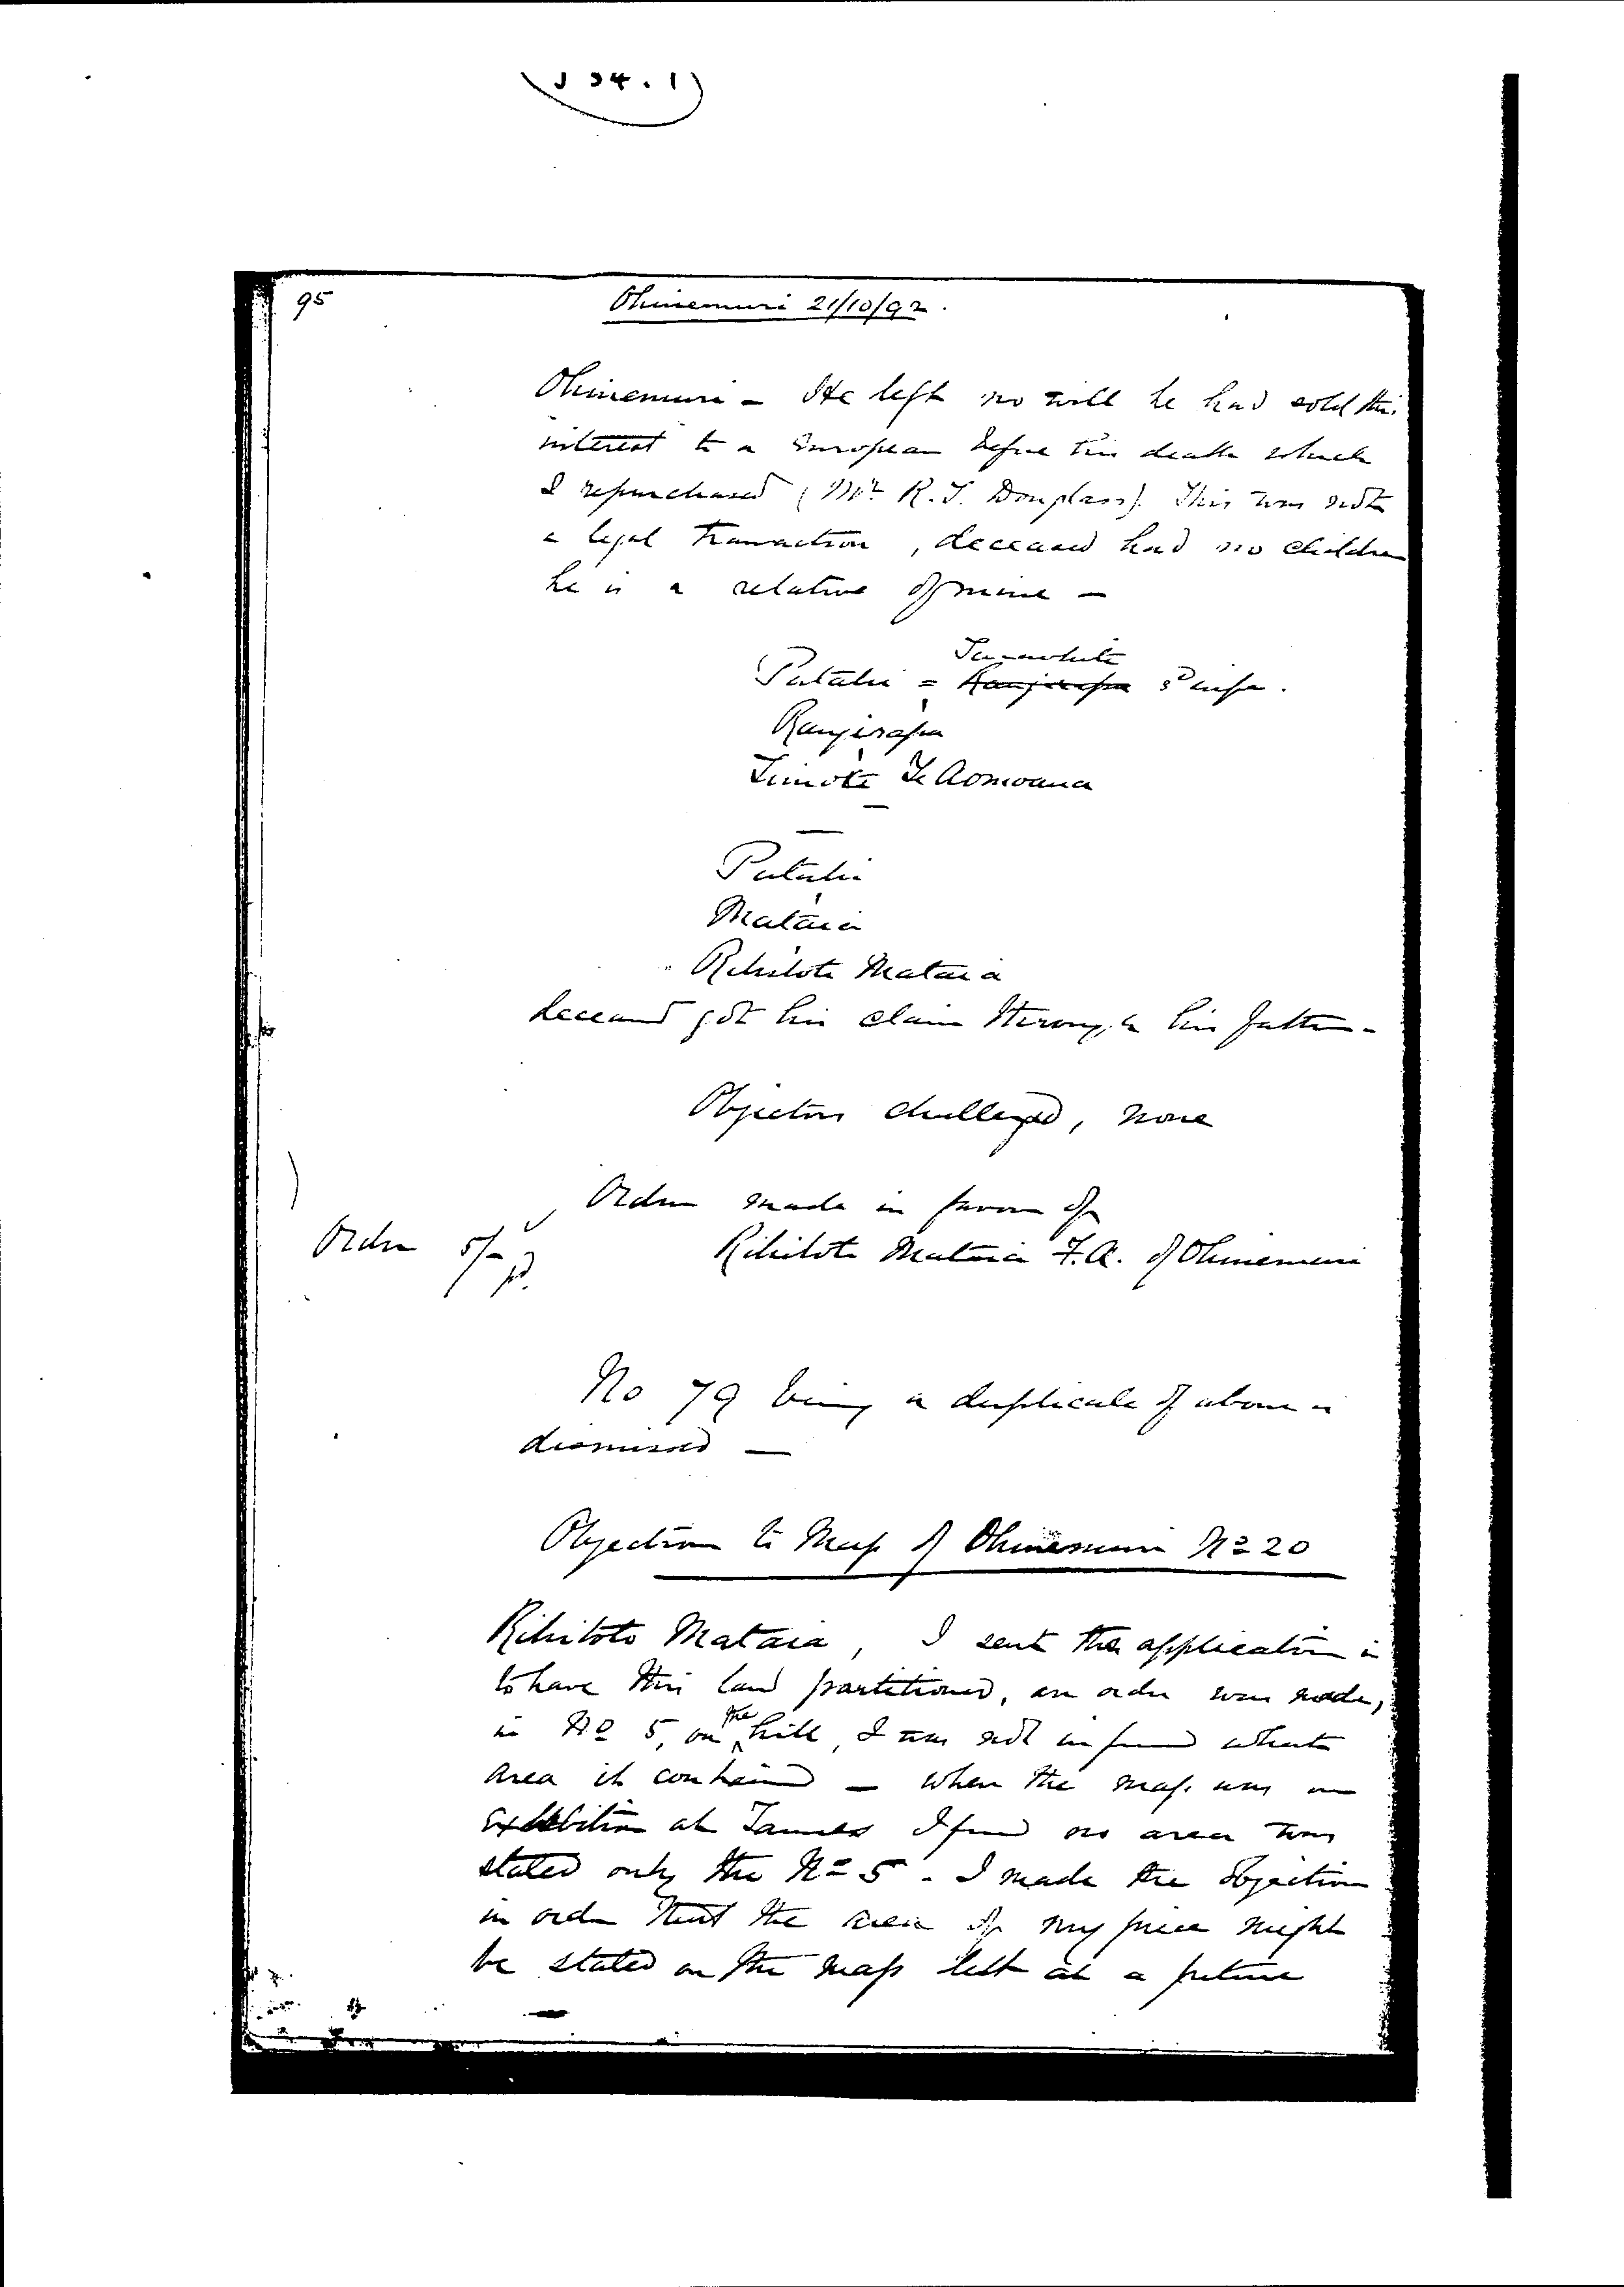 95
Ohinemuri 21/10/92.
Ohinemuri - He left no will he had sold this
interest to a European before his death which
I repurchased (Mr R. T. Douglass). This was not
a legal transaction, deceased had no children
he is a relative of mine -
Putahi =
Rangirapa
Timote Te Aomoana
Putahi
Mataia
Rihitoto Mataia
deceased got his claim through his father -
Objectors challenged, none
Order made in favor of
Order 5/-
pd.
Rihitoto Mataia F.A. of Ohinemuri
No 79 being a duplicate of above is
dismissed -
Objection to Map of Ohinemuri No 20
Rihitoto Mataia, I sent the application in
to have this land partitioned, an order was made,
in No 5, on the hill, I was not informed what
area it contained - when the map was on
exhibition at Thames I found no area was
stated only the No 5 - I made the objection
in order that the area of my piece might
be stated on the map lest at a future